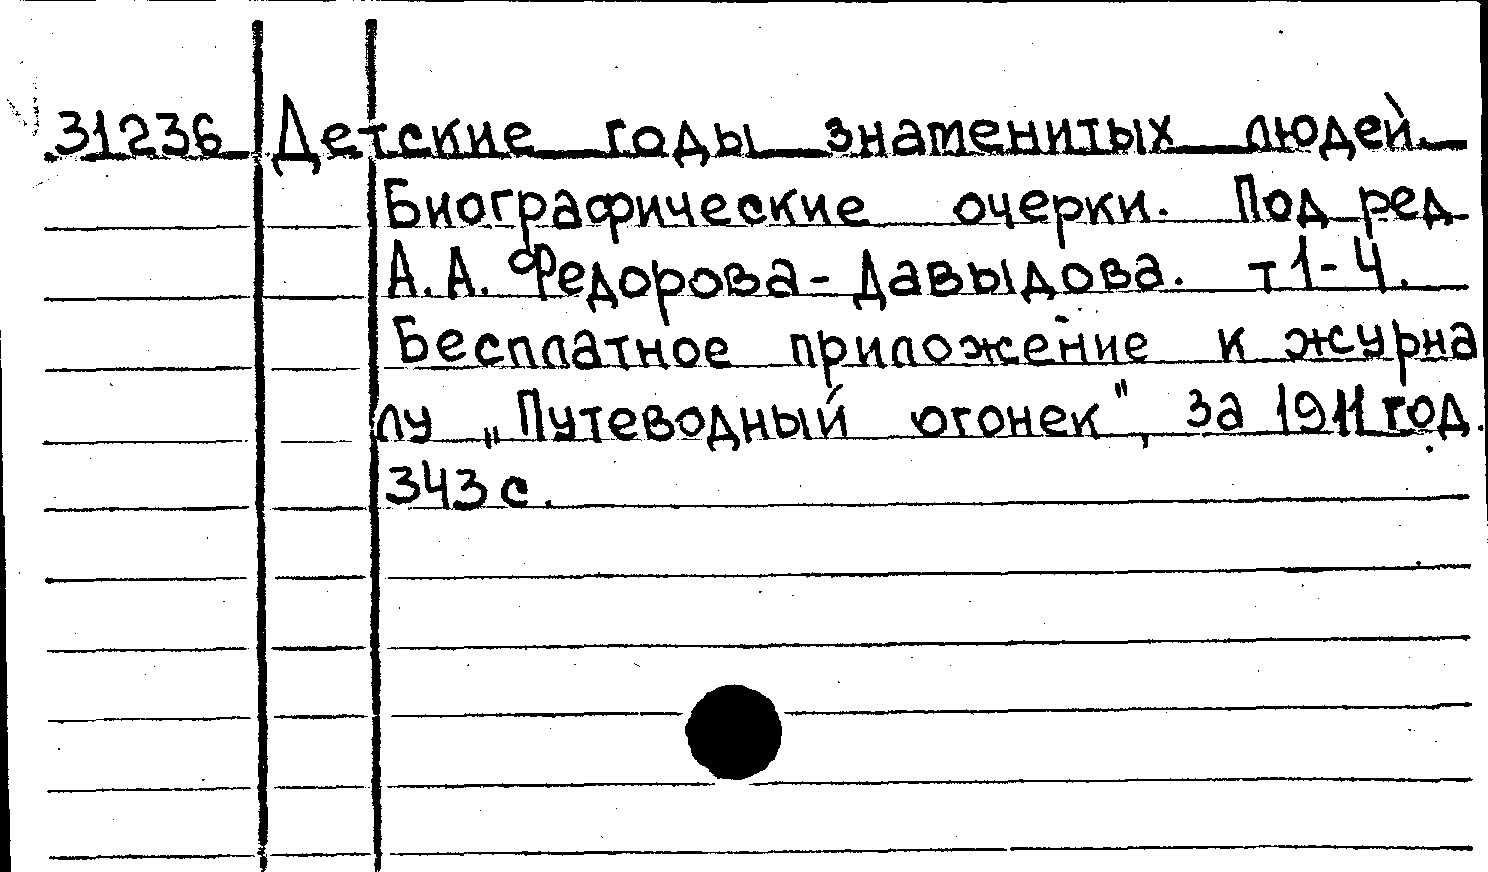 31236 Детские годы знаменитых людей.
Биографические очерки. Под ред
А.А. Федорова-Давыдова. т 1-4.
Бесплатное приложение к журна
лу „Путеводный огонек", за 1911 год.
343 с.